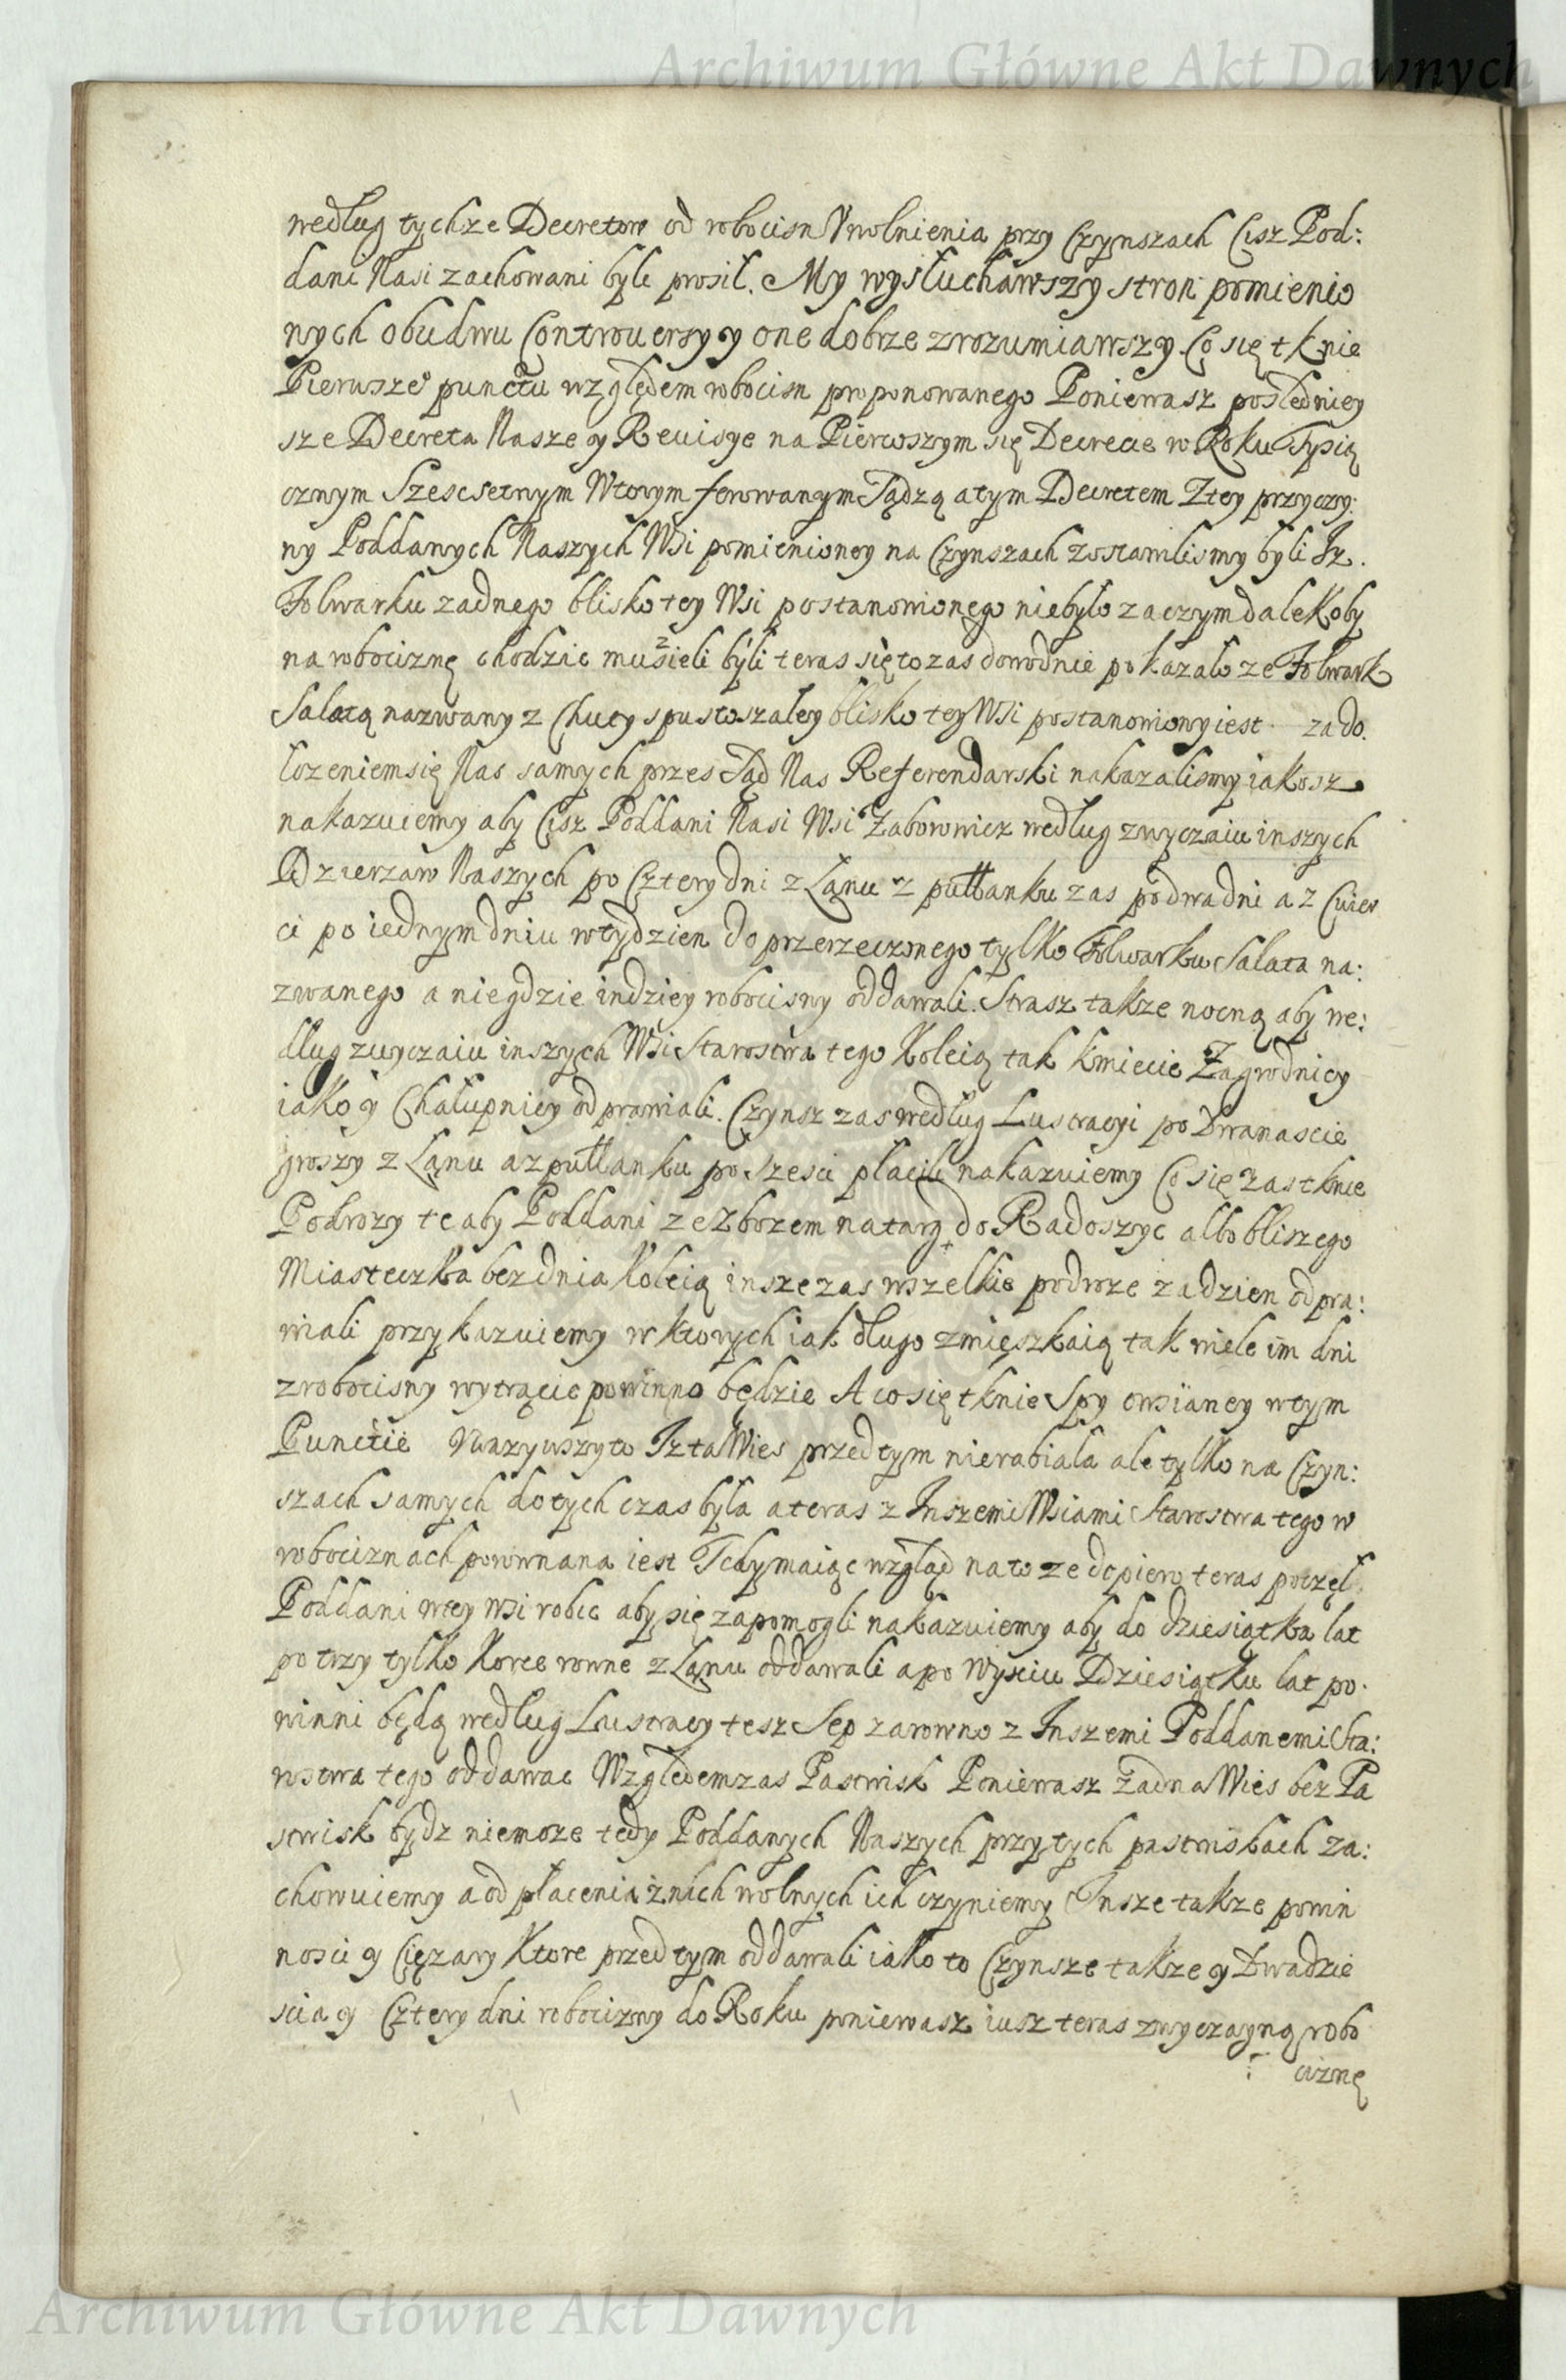 Archiwum Główne Akt Dawnych
według tychze Decretow od robocisn Vwolnienia przy Czynszach Cisz Pod:
dani Nasi zachowani byli prosił. My wysłuchawszy stron pomienio
nych obudwu Controuersyy y one dobrze zrozumiawszy. Co się tknie
Pierwszeo punctu względem robocisn proponowanego Poniewasz posledniey
sze Decreta Nasze y Reuisye na Pierwszym się Decrecie w Roku Tysią
cznym Szescsetnym Wtorym ferowanym Sądzą a tym Decretem Z tey przyczy:
ny Poddanych Naszych Wsi pomienioney na Czynszach zostawilismy byli Iz.
Folwarku zadnego blisko tey Wsi postanowionego niebyło zaczym daleKoby
na robociznę chodzic musieli byli teras się to zas dowodnie pokazało ze Folwark
Salatą nazwany z Chuty spustoszałey blisko tey Wsi postanowiony iest za do.
łozeniem się Nas samych przes Sąd Nas Referendarski nakazalismy iakosz
nakazuiemy aby Cisz Poddani Nasi Wsi Zaborowicz według zwyczaiu inszych
Dzierzaw Naszych po Cztery dni z Łanu z pułłanku zas po dwa dni a z Cwier
ci po iednym dniu w tydzien do przerzeczonego tylko Folwarku Salata na:
zwanego a niegdzie indziey robocisny oddawali. Strasz takze nocną aby we:
dług zwyczaiu inszych Wsi Starostwa tego Koleią tak kmiecie Zagrodnicy
iako y Chałupnicy odprawiali. Czynsz zas według Lustracyi po Dwanascie
groszy z Łanu a z pułłanku po szesci płacili nakazuiemy Co się zas tknie
Podrozy te aby Poddani ze zbozem na targ do Radoszyc albo bliszego
Miasteczka bez dnia Koleią insze zas wszelkie podroze za dzien odpra:
wiali przykazuiemy w ktorych iak długo zmięszkaią tak wiele im dni
z robocisny wytrącic powinno będzie A co się tknie Spy owsianey w tym
Puncie Vwazywszy to Iz ta Wies przedtym nierabiała ale tylko na Czyn:
szach samych do tych czas była a teras z Inszemi Wsiami Starostwa tego w
robociznach porownana iest Tedy maiąc wzgląd na to ze dopiero teras poczęli
Poddani w tey Wsi robic aby się zapomogli nakazuiemy aby do dziesiątka lat
po trzy tylko Korce rowne z Łanu oddawali a po Wysciu Dziesiątku lat po.
winni będą według Lustracy tesz Sep zarowno z Inszemi Poddanemi Sta:
rostwa tego oddawac Względem zas Pastwisk Poniewasz zadna Wies bez Pa
stwisk bydz niemoze tedy Poddanych Naszych przy tych pastwiskach za:
chowuiemy a od płacenia z nich wolnych ich czyniemy Insze takze powin
nosci y Cięzary Ktore przedtym oddawali iako to Czynsze takze y Dwadzie
scia y Cztery dni robocizny do Roku poniewasz iusz teras zwyczayną robo
ciznę
Archiwum Główne Akt Dawnych